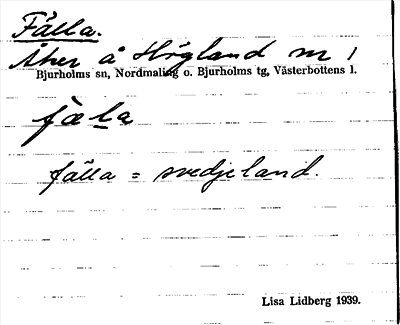 Fälla.
Åker å Högland nr 1
Bjurholms sn, Nordmaling o. Bjurholms tg, Västerbottens l.
fæla
fälla = svedjeland.
Lisa Lidberg 1939.